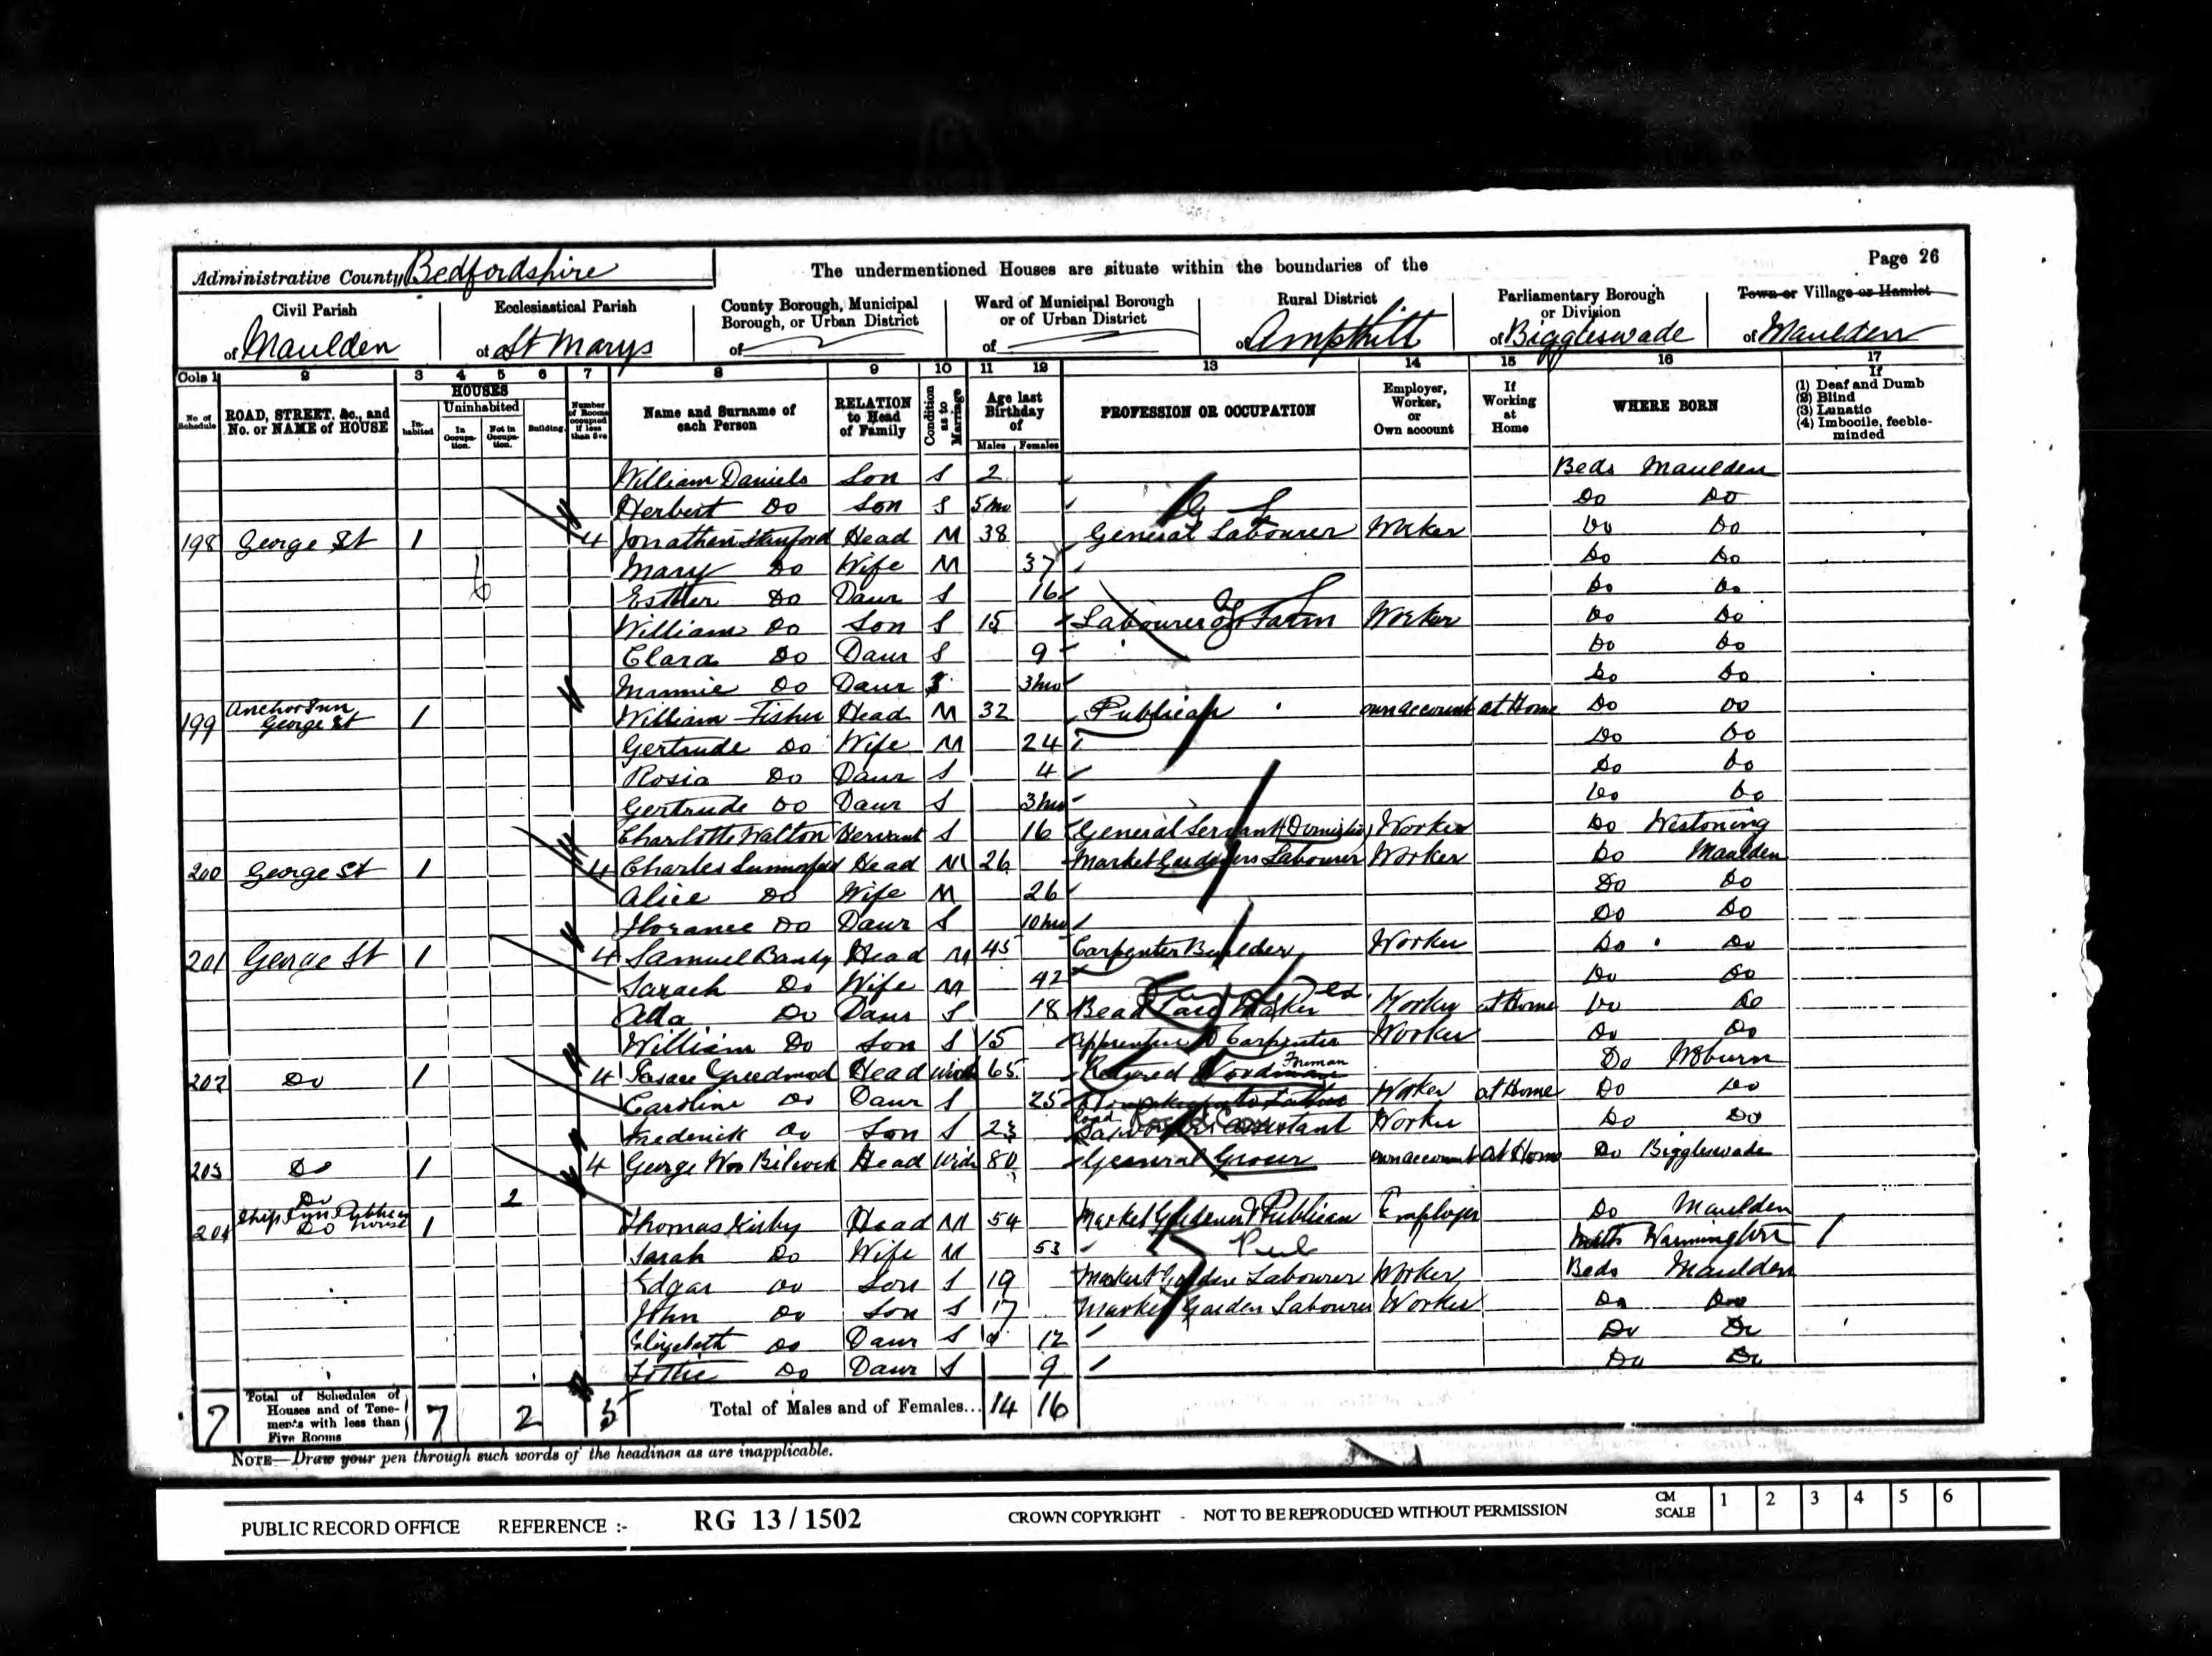 Page 26
Administrative County Bedfordshire
The undermentioned Houses are situate within the boundaries of the
Civil Parish of Maulden
Ecclesiastical Parish of St Marys
County Borough, Municipal Borough, or Urban District of
Ward of Municipal Borough or of Urban District of
Rural District of Ampthill
Parliamentary Borough or Division of Biggleswade
Town or Village or Hamlet of Maulden
Cols 1 2 3 4 5 6 7 8 9 10 11 12 13 14 15 16 17
No of Schedule
ROAD, STREET, &c., and No. or NAME of HOUSE
HOUSES
Inhabited
Uninhabited
In Occupation.
Not in Occupation.
Building.
Number of Rooms occupied if less than five
Name and Surname of each Person
RELATION to Head of Family
Condition as to Marriage
Age last Birthday of
Males Females
PROFESSION OR OCCUPATION
Employer, Worker, or Own account
If Working at Home
WHERE BORN
If
(1) Deaf and Dumb
(2) Blind
(3) Lunatic
(4) Imbecile, feeble-minded
William Daniels Son S 2 Beds Maulden
Herbert Do Son S 5mo Do Do
198 George St 1 4 Jonathan Stanford Head M 38 General Labourer Worker Do Do
Mary Do Wife M 37 Do Do
Esther Do Daur S 16 Do Do
William Do Son S 15 Labourer on Farm Worker Do Do
Clara Do Daur S 9 Do Do
Minnie Do Daur S 3mo Do Do
199 Anchor Inn George St 1 William Fisher Head M 32 Publican own account at Home Do Do
Gertrude Do Wife M 24 Do Do
Rosia Do Daur S 4 Do Do
Gertrude Do Daur S 3mo Do Do
Charlotte Walton Servant S 16 General Servant (Domestic) Worker Do Westoning
200 George St 1 4 Charles Summerford Head M 26 Market Gardeners Labourer Worker Do Maulden
Alice Do Wife M 26 Do Do
Florance Do Daur S 10mo Do Do
201 George St 1 4 Samuel Bandy Head M 45 Carpenter Builder Worker Do Do
Sarach Do Wife M 42 Do Do
Ada Do Daur S 18 Bead Lace Maker Worker at Home Do Do
William Do Son S 15 Apprentice to Carpenter Worker Do Do
202 Do 1 4 Head Wid 65 Retired Do Woburn
Caroline Do Daur S 25 Worker at Home Do Do
Frederick Do Son S 23 Assistant Worker Do Do
203 Do 1 4 George Wm Head Wid 80 General Grocer own account at Home Do Biggleswade
Do 2
204 Ship Inn Public house Do 1 Thomas Kirby Head M 54 Market Gardener & Publican Employer Do Maulden
Sarah Do Wife M 53 Pub Warmington
Edgar Do Son S 19 Market Garden Labourer Worker Beds Maulden
John Do Son S 17 Market Garden Labourer Worker Do Do
Elizebeth Do Daur S 12 Do Do
Lottie Do Daur S 9 Do Do
7 Total of Schedules of Houses and of Tenements with less than Five Rooms 7 2 5 Total of Males and of Females... 14 16
NOTE—Draw your pen through such words of the headings as are inapplicable.
PUBLIC RECORD OFFICE REFERENCE :- RG 13 / 1502 CROWN COPYRIGHT - NOT TO BE REPRODUCED WITHOUT PERMISSION CM SCALE 1 2 3 4 5 6